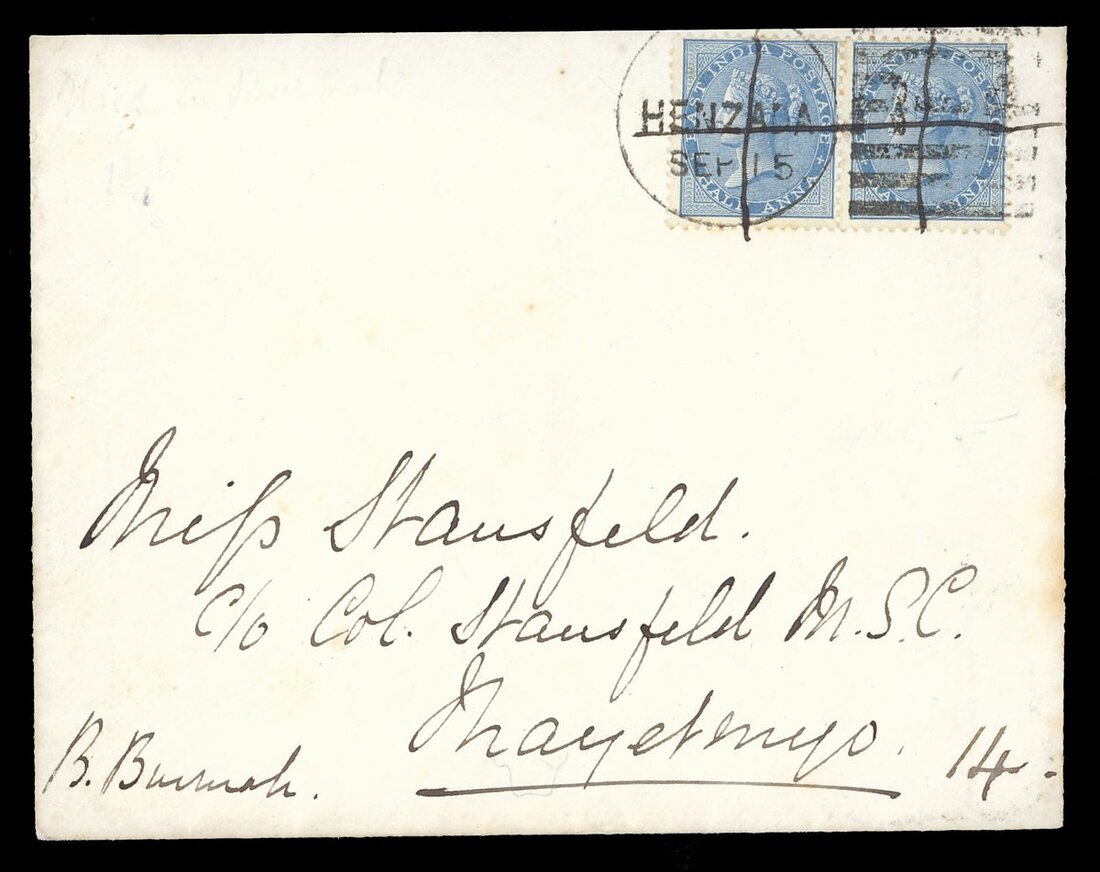 EAST INDIA POSTAGE
HALF ANNA
EAST INDIA POSTAGE
HALF ANNA
HENZADA
SEP 15
Miss Stansfeld.
c/o Col. Stansfeld M.S.C.
Thayetmyo.
B. Burmah.
14